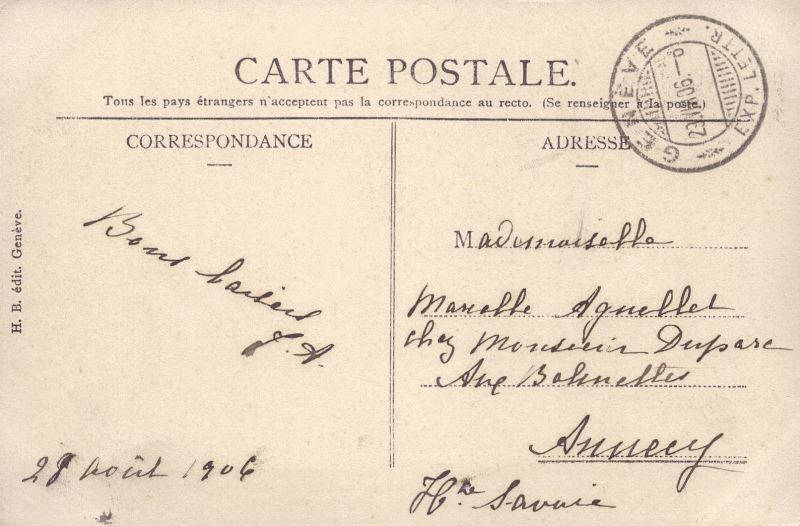 CARTE POSTALE.
Tous les pays étrangers n'acceptent pas la correspondance au recto. (Se renseigner à la poste.)
CORRESPONDANCE
ADRESSE
GENÈVE
EXP. LETTR.
H. B. édit. Genève.
Bons baisers
J. A.
28 août 1906
Mademoiselle
Marcelle Agnellet
chez Monsieur Duparc
Aux
Annecy
Hte Savoie